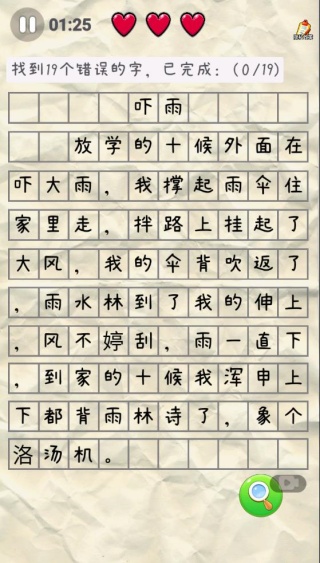 01:25
找到19个错误的字，已完成：(0/19)
吓雨
放学的十候外面在
吓大雨，我撑起雨伞住
家里走，拌路上挂起了
大风，我的伞背吹返了
，雨水林到了我的伸上
，风不婷刮，雨一直下
，到家的十候我浑申上
下都背雨林诗了，象个
洛汤机。